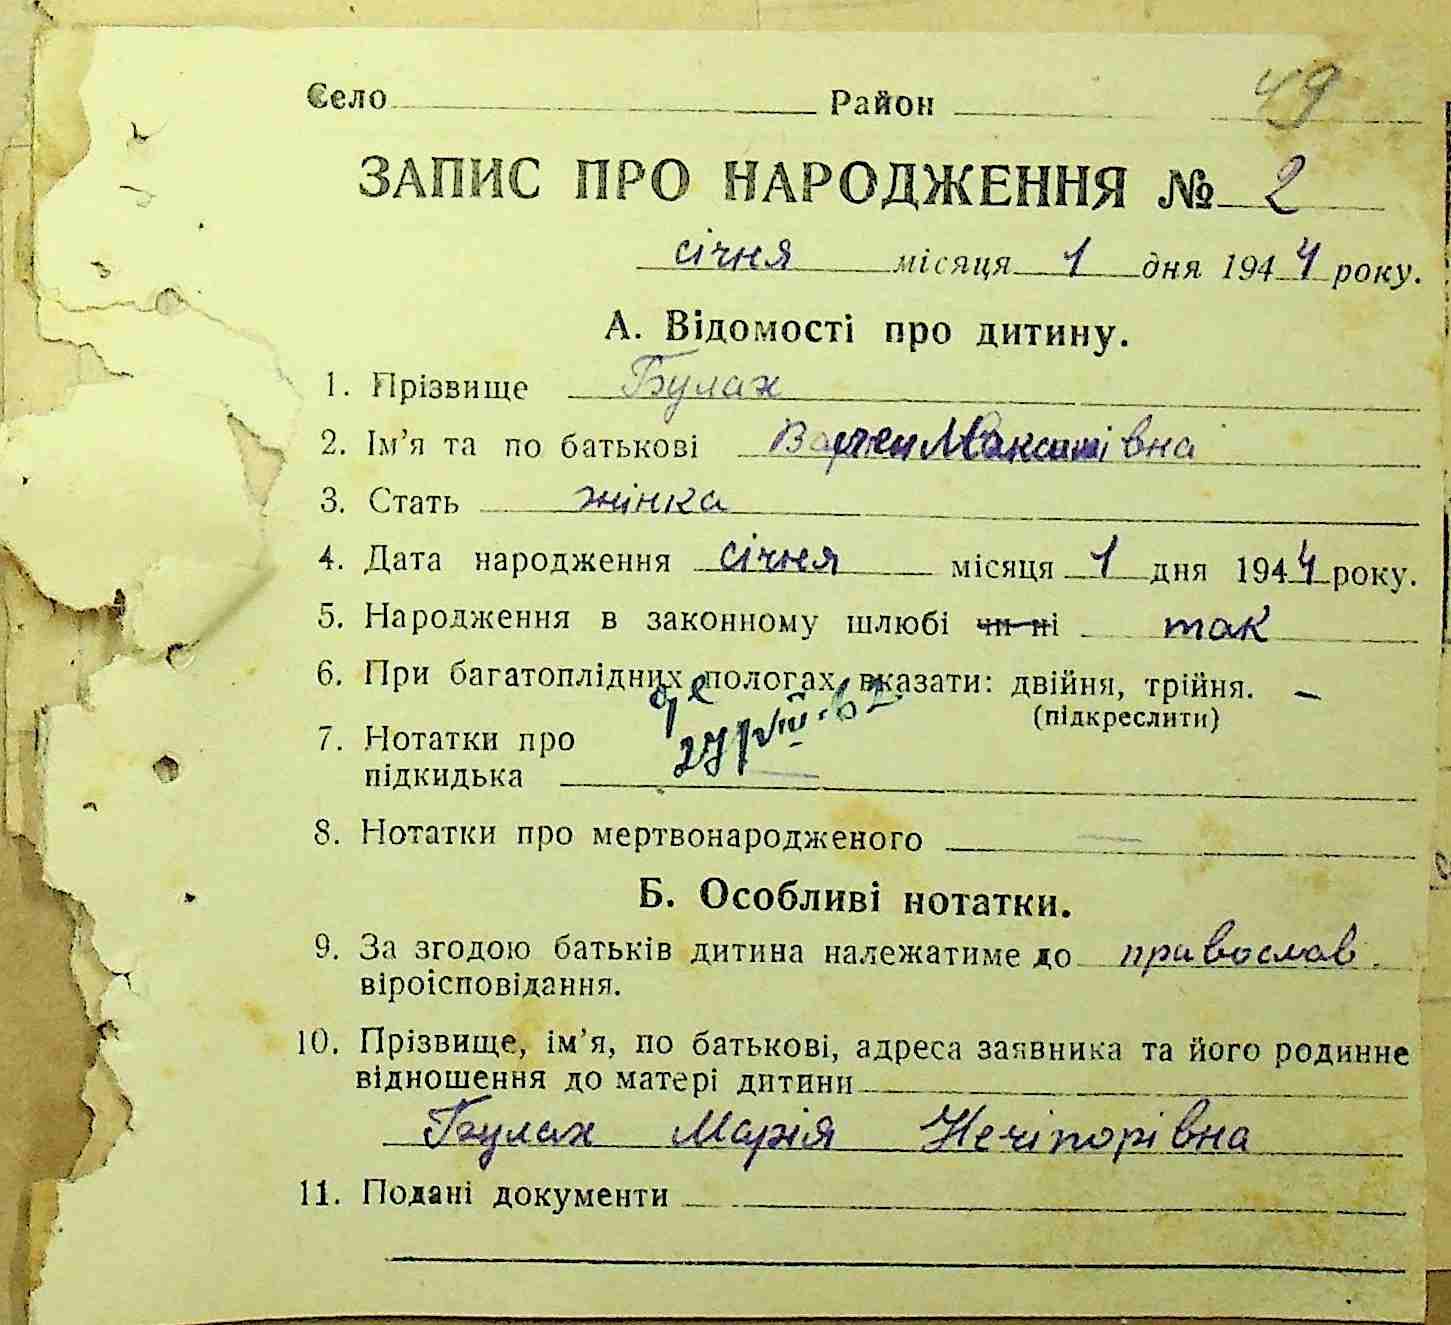 Село Район 49
ЗАПИС ПРО НАРОДЖЕННЯ № 2
січня місяця 1 дня 1944 року.
А. Відомості про дитину.
1. Прізвище Булах
2. Ім’я та по батькові Максимівна
3. Стать жінка
4. Дата народження січня місяця 1 дня 1944 року.
5. Народження в законному шлюбі чи ні так
6. При багатоплідних пологах вказати: двійня, трійня. –
(підкреслити)
7. Нотатки про
підкидька
8. Нотатки про мертвонародженого —
Б. Особливі нотатки.
9. За згодою батьків дитина належатиме до православ.
віроісповідання.
10. Прізвище, ім’я, по батькові, адреса заявника та його родинне
відношення до матері дитини
Булах Марія Нечіпорівна
11. Подані документи